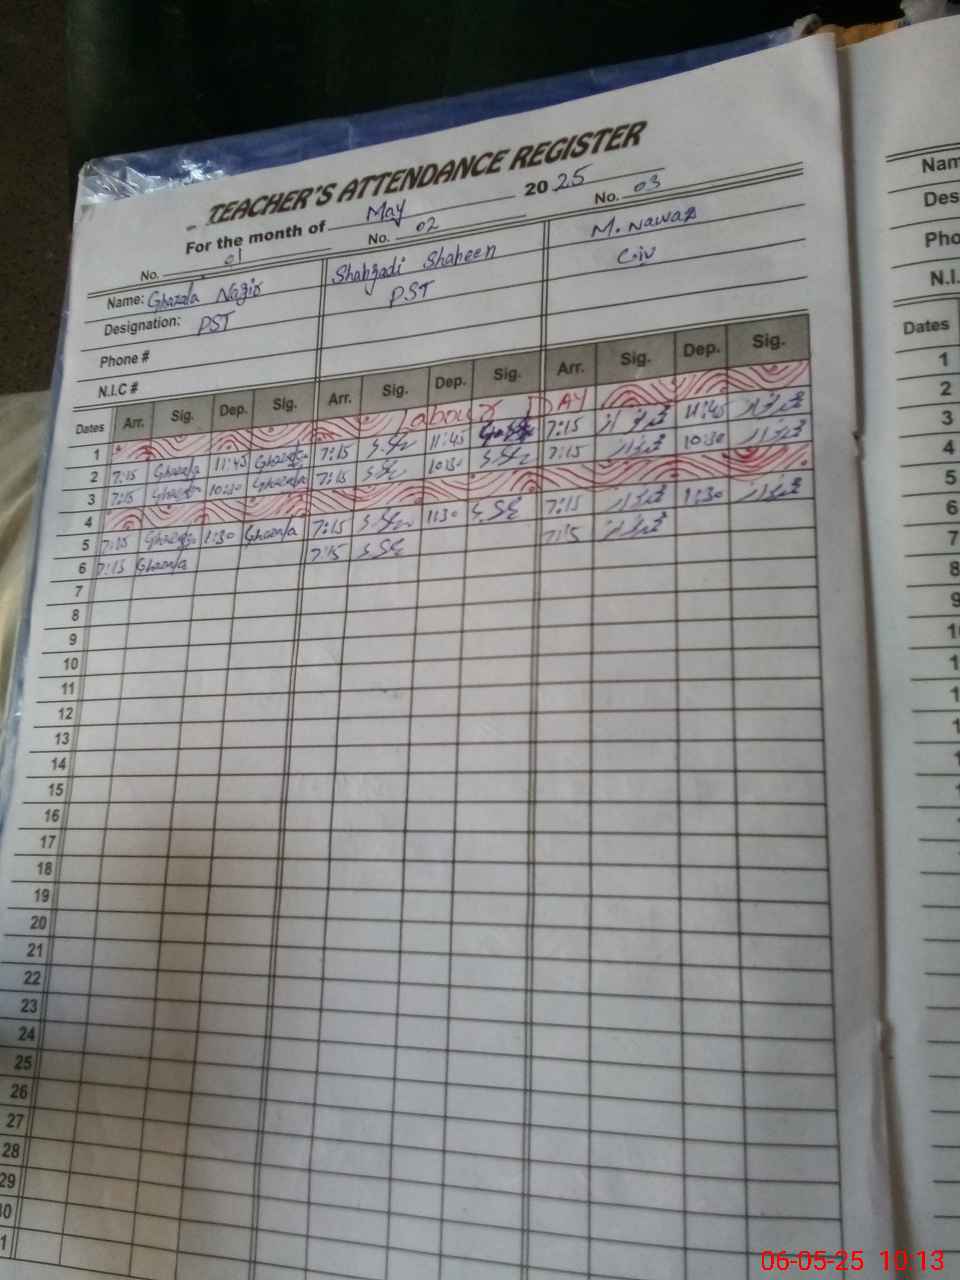 TEACHER'S ATTENDANCE REGISTER
For the month of May 2025
No. 01 No. 02 No. 03
Name: Ghazala Nazir Shahzadi Shaheen M. Nawaz
Designation: PST PST C-iv
Phone #
N.I.C #
Dates Arr. Sig. Dep. Sig. Arr. Sig. Dep. Sig. Arr. Sig. Dep. Sig.
1 Labour DAY
2 7:15 Ghazala 11:45 Ghazala 7:15 11:45 7:15 11:45
3 7:15 Ghazala 10:30 Ghazala 7:15 10:30 7:15 10:30
4
5 7:15 Ghazala 1:30 Ghazala 7:15 1:30 7:15 1:30
6 7:15 Ghazala 7:15 7:15
7
8
9
10
11
12
13
14
15
16
17
18
19
20
21
22
23
24
25
26
27
28
29
Nam
Des
Pho
N.I.
Dates
1
2
3
4
5
6
7
8
06-05-25 10:13